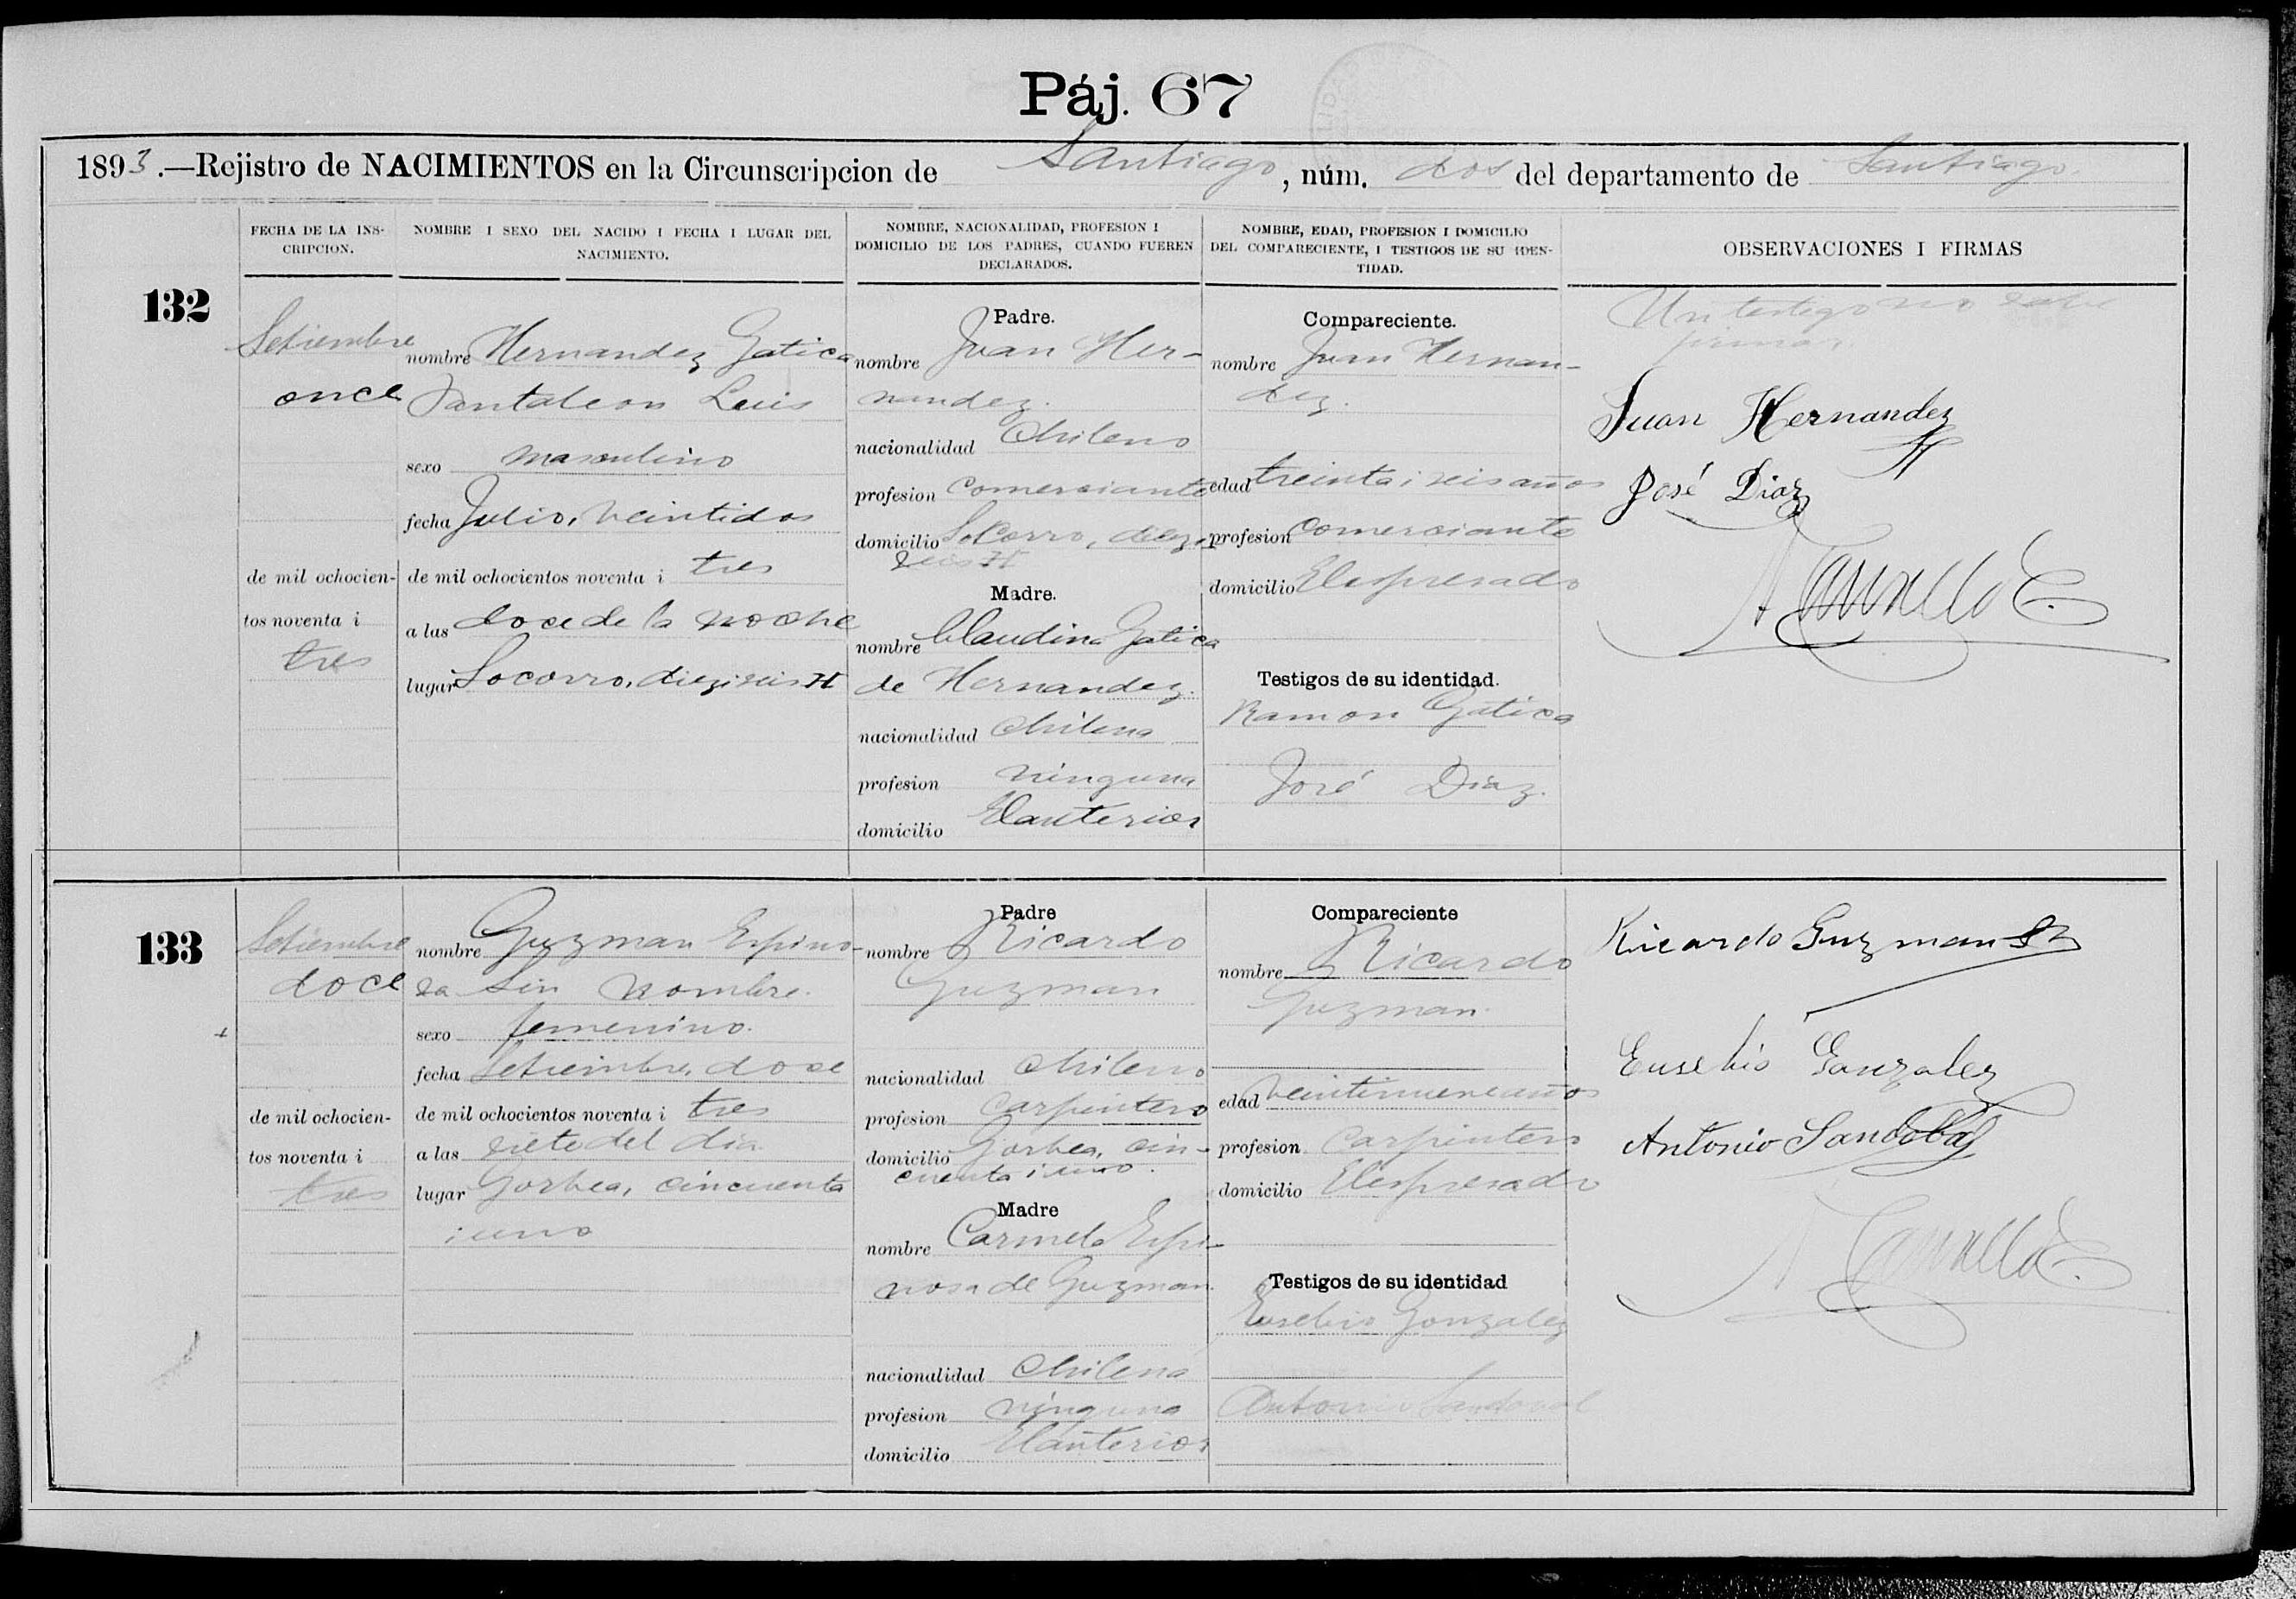 Páj. 67
1893.—Rejistro de NACIMIENTOS en la Circunscripcion de Santiago, núm. dos del departamento de Santiago.
FECHA DE LA INS-
CRIPCION.
NOMBRE I SEXO DEL NACIDO I FECHA I LUGAR DEL
NACIMIENTO.
NOMBRE, NACIONALIDAD, PROFESION I
DOMICILIO DE LOS PADRES, CUANDO FUEREN
DECLARADOS.
NOMBRE, EDAD, PROFESION I DOMICILIO
DEL COMPARECIENTE, I TESTIGOS DE SU IDEN-
TIDAD.
OBSERVACIONES I FIRMAS
132
Setiembre
once
de mil ochocien-
tos noventa i
tres
nombre Hernandez Gatica
Pantaleon Luis
sexo masculino
fecha Julio, veintidos
de mil ochocientos noventa i tres
a las doce de la noche
lugar Socorro, dieziseis H
Padre.
nombre Juan Her-
nandez.
nacionalidad Chileno
profesion Comerciante
domicilio Socorro, diezi
seis H
Madre.
nombre Claudina Gatica
de Hernandez.
nacionalidad Chilena
profesion ninguna
domicilio El anterior
Compareciente.
nombre Juan Hernan-
dez.
edad treinta i seis años
profesion Comerciante
domicilio El espresado
Testigos de su identidad.
Ramon Gatica
José Diaz.
Un testigo no sabe
firmar.
Juan Hernandez
José Diaz
133
Setiembre
doce
de mil ochocien-
tos noventa i
tres
nombre Guzman Espino-
za Sin nombre.
sexo femenino.
fecha Setiembre, doce
de mil ochocientos noventa i tres
a las siete del dia
lugar Gorbea, cincuenta
i uno
Padre
nombre Ricardo
Guzman
nacionalidad Chileno
profesion Carpintero
domicilio Gorbea, cin-
cuenta i uno.
Madre
nombre Carmela Espi-
nosa de Guzman.
nacionalidad Chilena
profesion ninguna
domicilio El anterior
Compareciente
nombre Ricardo
Guzman.
edad veintinueve años
profesion Carpintero
domicilio El espresado
Testigos de su identidad
Eusebio Gonzalez
Antonio Sandoval
Ricardo Guzman
Eusebio Gonzalez
Antonio Sandobal